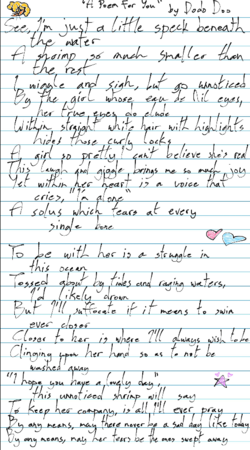 "A Poem For You" by Dodo Doo
See, I'm just a little speck beneath
the water
A shrimp so much smaller than
the rest
I wiggle and sigh, but go unnoticed
By the girl whose eau de Nil eyes,
her true eyes go elude
Within straight white hair with highlights
hides those curly locks
A girl so pretty, can't believe she's real
This laugh and giggle brings me so much joy
Yet within her heart is a voice that
cries, "I'm alone"
A solus which tears at every
single bone
To be with her is a struggle in
this ocean
Tossed about by tides and raging waters,
I'd likely drown
But I'll suffocate if it means to swim
ever closer
Closer to her is where I'll always wish to be
Clinging upon her hand so as to not be
washed away
"I hope you have a lovely day"
this unnoticed shrimp will say
To keep her company, is all I'll ever pray
By any means, may there never be a sad day like today
By any means, may her tears be the ones swept away